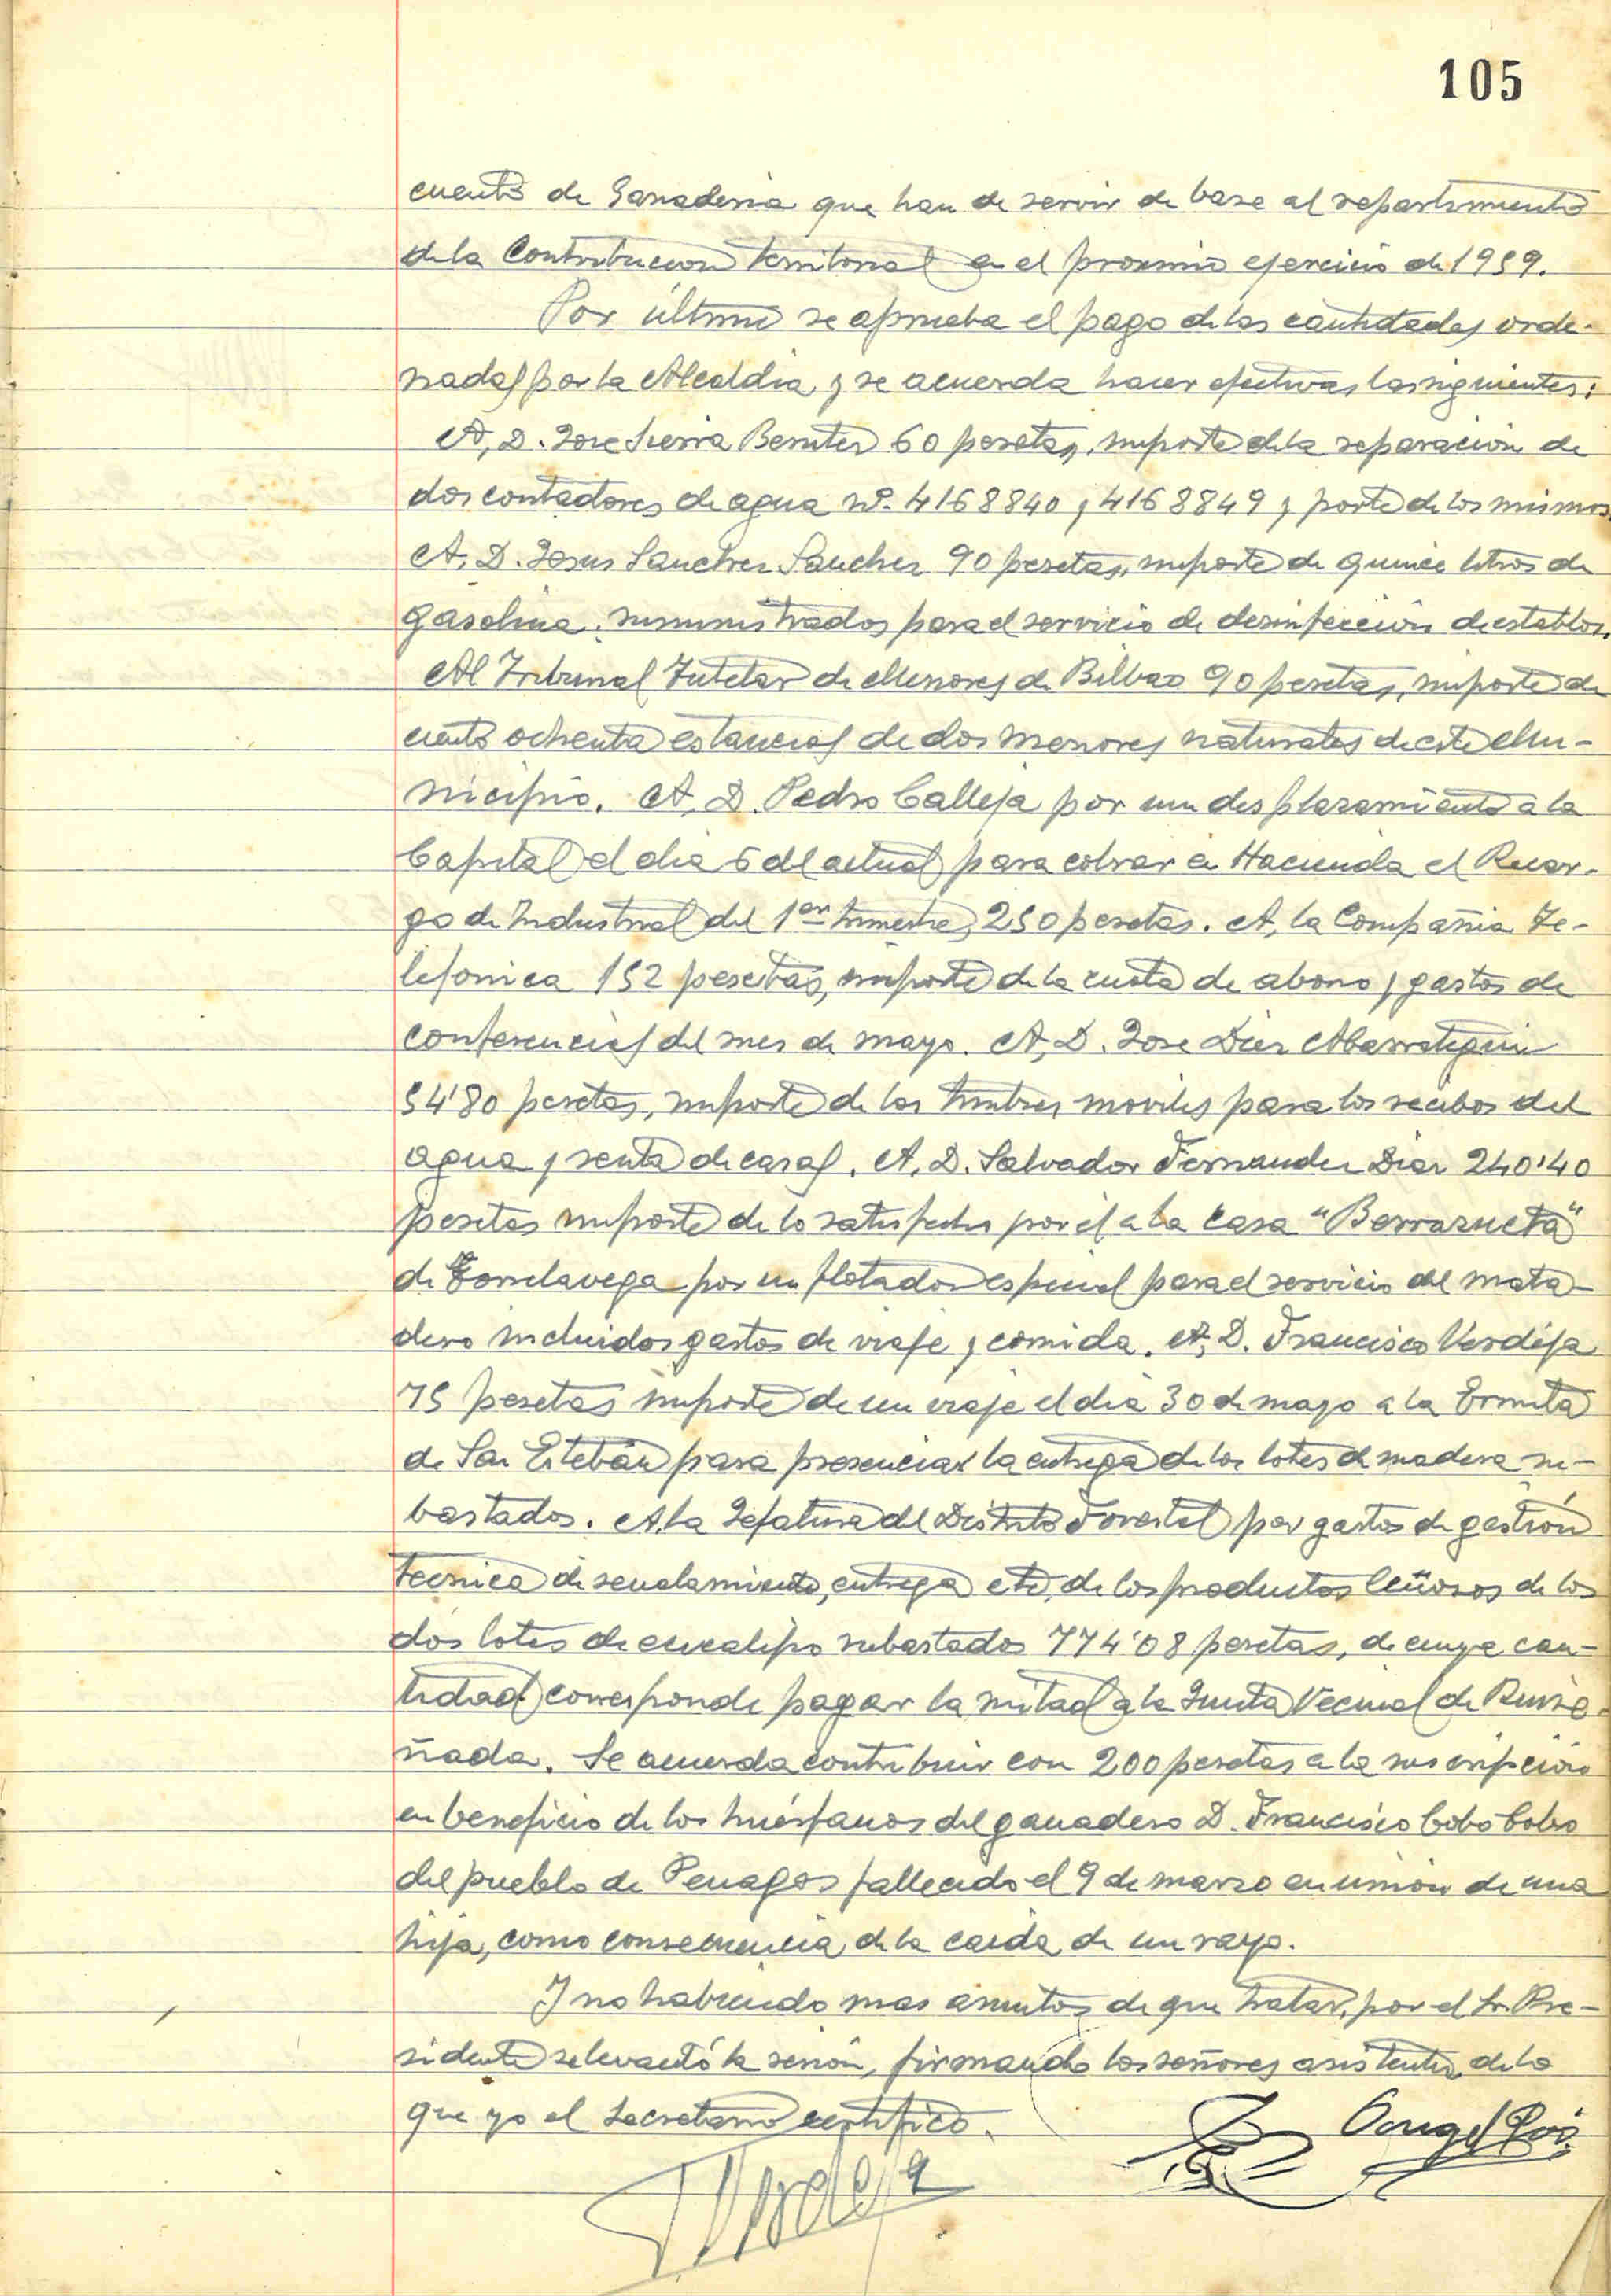 105
cuento de Ganaderia que han de servir de base al repartimiento
de la Contribucion territorial en el proximo ejercicio de 1959.
Por último se aprueba el pago de las cantidades orde-
nadas por la Alcaldia, y se acuerda hacer efectivas las siguientes:
A, D. Jose Sierra 60 pesetas, importe de la reparación de
dos contadores de agua nº. 4168840 y 4168849 y porte de los mismos.
A, D. Jesus Sanchez Sanchez 90 pesetas, importe de quince litros de
gasolina, suministrados para el servicio de desinfección de establos.
Al Tribunal Tutelar de Menores de Bilbao 90 pesetas, importe de
ciento ochenta estancias de dos menores naturales de este Mu-
nicipio. A, D. Pedro Calleja por un desplazamiento a la
Capital el dia 6 del actual para cobrar en Hacienda el Recar-
go de Industrial del 1er trimestre, 250 pesetas. A, la Compañia Te-
lefonica 152 pesetas, importe de la cuota de abono y gastos de
conferencias del mes de mayo. A, D. Jose Diez Abarrategui
54'80 pesetas, importe de los timbres moviles para los recibos del
agua y renta de casas. A, D. Salvador Fernandez Diaz 240'40
pesetas importe de lo satisfecho por el a la casa "Berrazueta"
de Torrelavega por un flotador especial para el servicio del mata-
dero incluidos gastos de viaje y comida. A, D. Francisco Verdeja
75 pesetas importe de un viaje el dia 30 de mayo a la Ermita
de San Estebán para presenciar la entrega de los lotes de madera su-
bastados. A, la Jefatura del Distrito Forestal por gastos de gestión
tecnica de senalamiento, entrega etc, de los productos leñosos de los
dos lotes de eucalipo subastados 774'08 pesetas, de cuya can-
tidad corresponde pagar la mitad a la Junta Vecinal de Ruise-
ñada. Se acuerda contribuir con 200 pesetas a la suscripción
en beneficio de los huérfanos del ganadero D. Francisco Cobo Cobo
del pueblo de Penagos fallecido el 9 de marzo en union de una
hija, como consecuencia de la caida de un rayo.
Y no habiendo mas asuntos de que tratar, por el Sr. Pre-
sidente se levantó la sesión, firmando los señores asistentes de lo
que yo el Secretario certifico.
Angel Ruiz
Verdeja